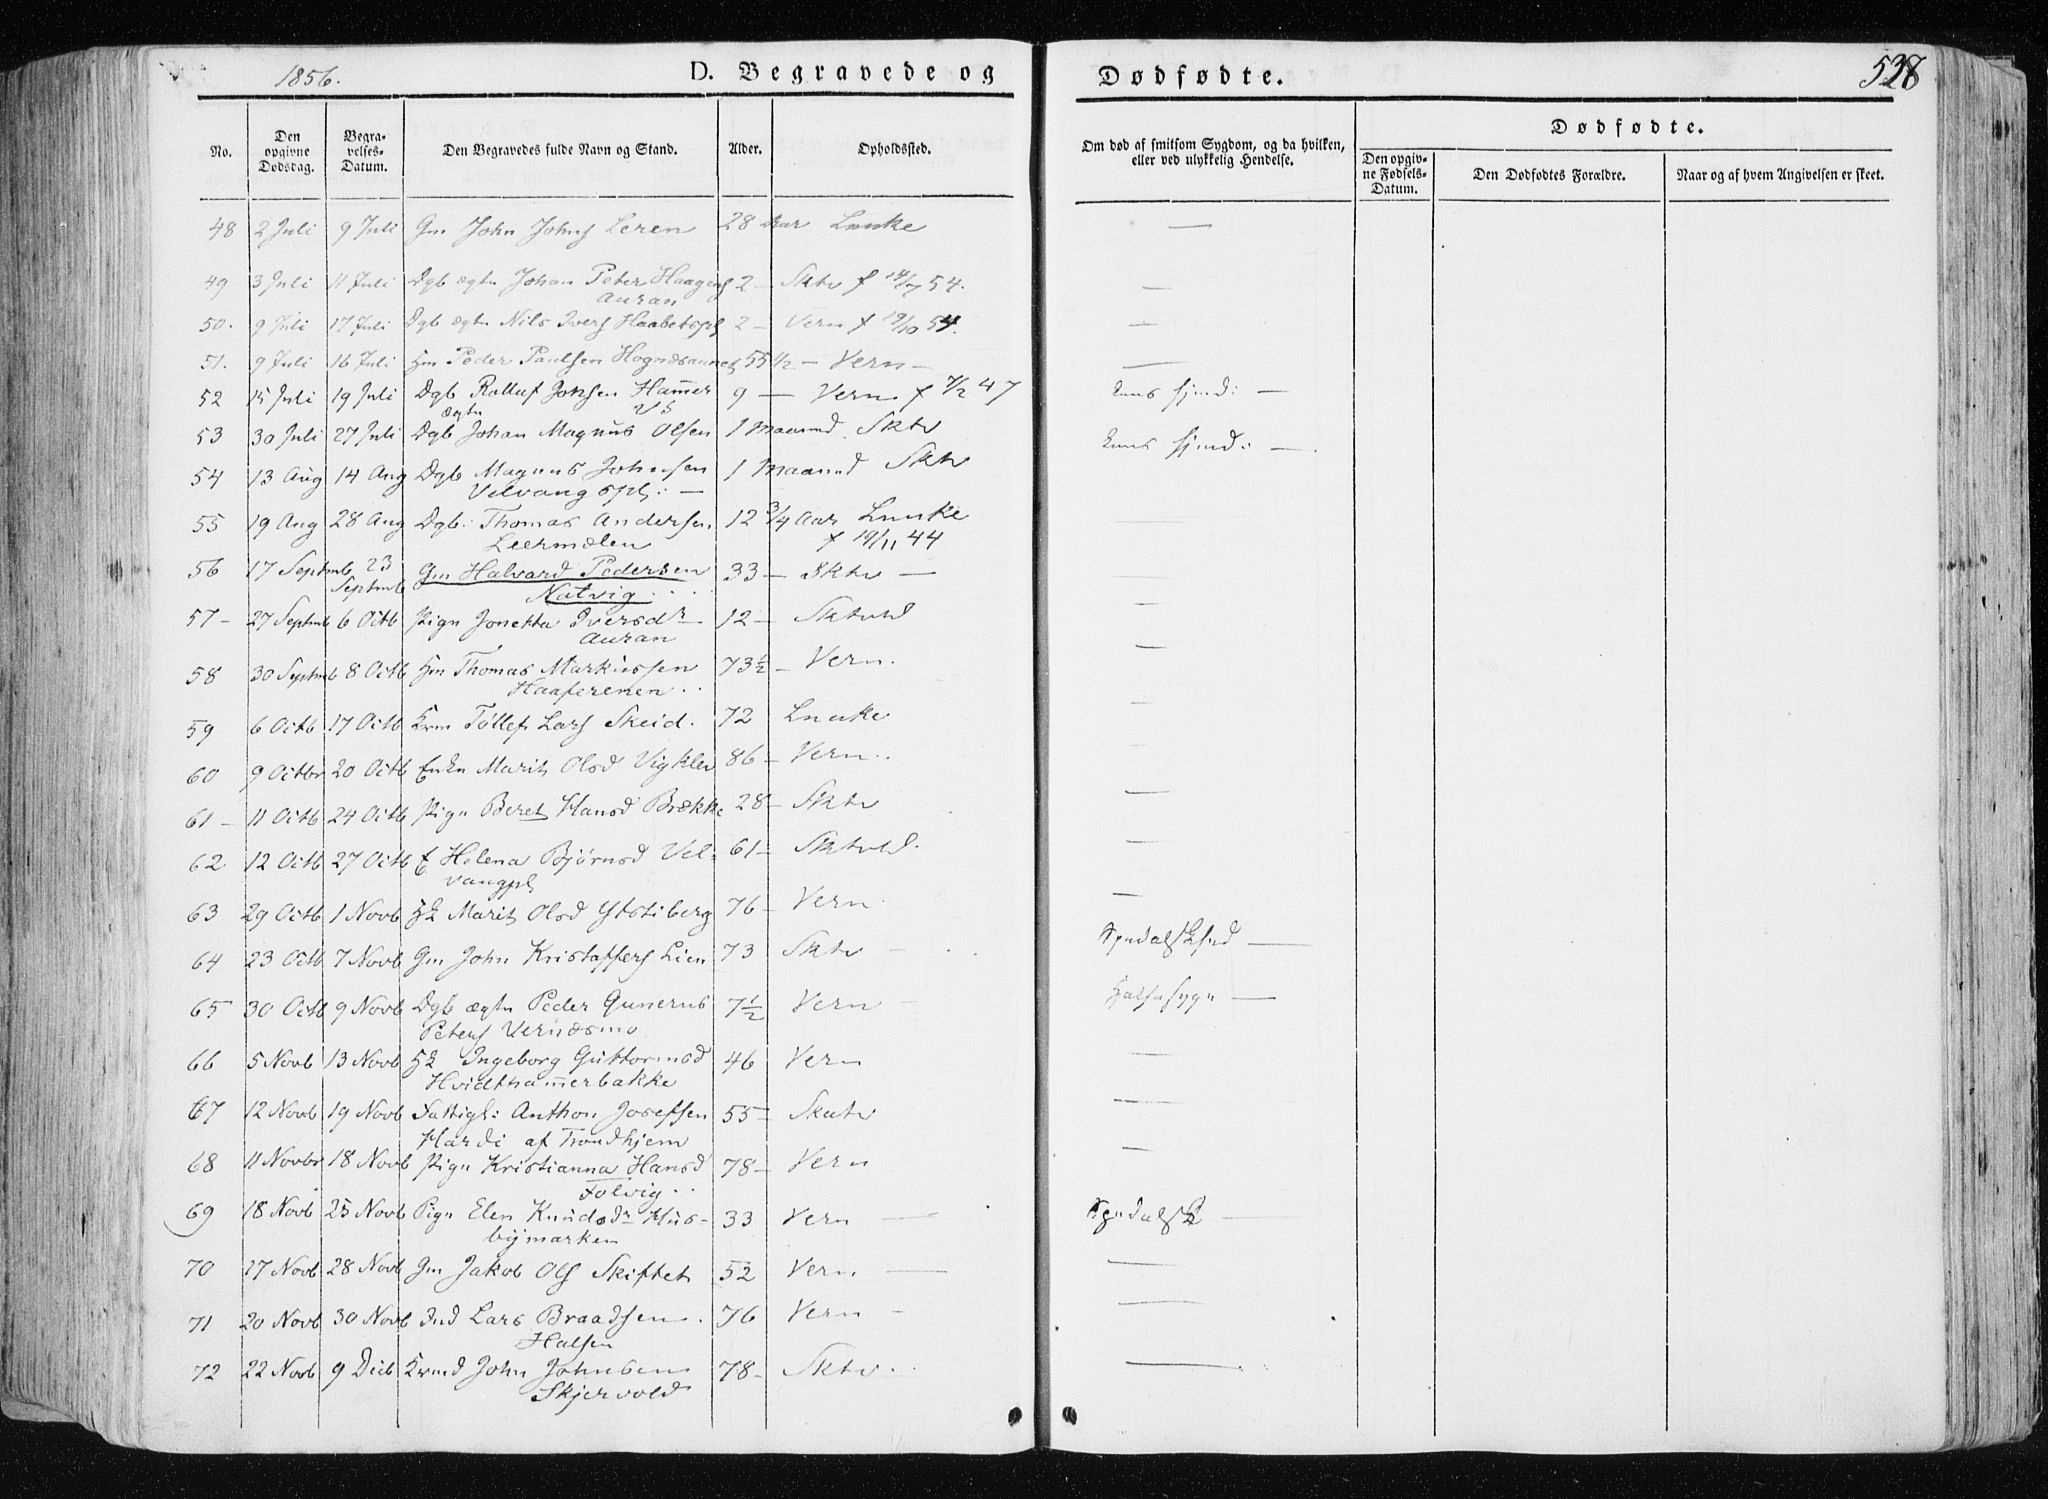 1856.
D. Begravede og Dødfødte.
528
No.
Den opgivne Dødsdag.
Begravelses-Datum.
Den Begravedes fulde Navn og Stand.
Alder.
Opholdssted.
Om død af smitsom Sygdom, og da hvilken, eller ved ulykkelig Hendelse.
Dødfødte.
Den opgivne Fødsels-Datum.
Den Dødfødtes Forældre.
Naar og af hvem Angivelsen er skeet.
48 2 Juli 9 Juli Gm John Johns Leren 28 Aar Laanke —
49 3 Juli 11 Juli Dgb ægtn Johan Peter Haagens 2 — Sktv f 14/7 54. —
Auran
50. 9 Juli 17 Juli Dgb ægtn Nils Ivers Haabetspl 2 — Vern f 19/10 54. —
51. 9 Juli 16 Juli Hm Peder Paulsen Hognæsaunet 55 1/2 — Vern — —
52 15 Juli 19 Juli Dgb Rolluf Jonsen Hammer 9 — Vern f 7/2 47
ægtn VS
53 30 Juli 27 Juli Dgb Johan Magnus Olsen 1 Maaned Sktv
54 13 Aug 14 Aug Dgb Magnus Johnsen 1 Maaned Sktv
Velvang spl: —
55 19 Aug 28 Aug Dgb: Thomas Andersen 12 3/4 Aar Laanke —
Leermælen f 19/11 44
56 17 Septmb 23 Septmb Gm Halvard Pedersen 33 — Sktv — —
Natvig
57 — 27 Septmb 6 Octb Pign Jonetta Iversdr 12 — Sktvld —
Auran
58 30 Septmb 8 Octb Hm Thomas Markussen 73 1/2 — Vern. —
Haaferenen
59 6 Octb 17 Octb Krm Tøllef Lars Skeid. 72 Laanke —
60 9 Octbr 20 Octb Enkn Marit Olsd Vigklev 86 — Vern. —
61 — 11 Octb 24 Octb Pign Beret Hansd Brække 28 — Sktv —
62 12 Octb 27 Octb E Helena Bjørnsd Vel- 61 — Sktvld. —
vangpl
63 29 Octb 1 Novb Marit Olsd Ystiberg 76 — Vern —
64 23 Octb 7 Novb Gm John Kristoffers Lien 73 Sktv — Spedalsk —
65 30 Octb 9 Novb Dgb ægtn Peder Gunerus 7 1/2 Vern — Halsesygn —
Peters Vernæsmo
66 5 Novb 13 Novb Ingeborg Guttormsd 46 Vern —
Hvidthammerbakke
67 12 Novb 19 Novb Fattigl: Anthon Josefsen 55 — Skatv —
Hardi af Trondhjem
68 11 Novbr 18 Novb Pign Kristianna Hansd 78 — Vern —
Folvig
69 18 Novb 25 Novb Pign Elen Knudsdr Hus- 33 Vern — Spedalsk —
bymarken
70 17 Novb 28 Novb Gm Jakob Ols Skiftet 52 Vern — —
71 20 Novb 30 Novb Ind Lars Braadsen 76 Vern — —
Halsen
72 22 Novb 9 Decb John Johnsen 78 — Sktv. —
Skjervold